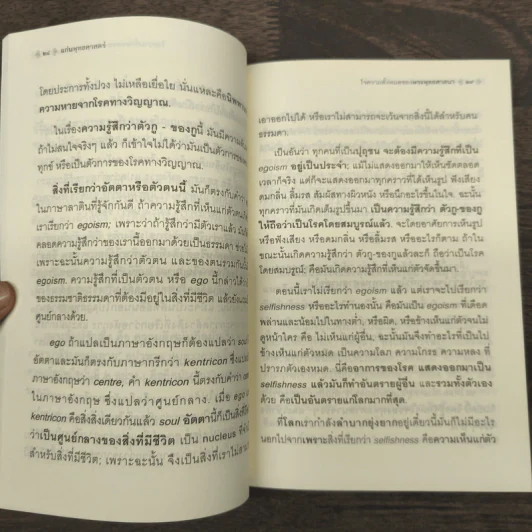 ๒๘ แก่นพุทธศาสตร์
โดยประการทั้งปวง ไม่เหลือเยื่อใย นั่นแหละคือ
ความหายจากโรคทางวิญญาณ.
ในเรื่องความรู้สึกว่าตัวกู - ของกูนี้ มันมีความ
ถ้าไม่สนใจจริงๆ แล้ว ก็เข้าใจไม่ได้ว่ามันเป็นตัวการของความ
ทุกข์ หรือเป็นตัวการของโรคทางวิญญาณ.
สิ่งที่เรียกว่าอัตตาหรือตัวตนนี้ มันก็ตรงกับคำว่า
ในภาษาลาตินที่รู้จักกันดี ถ้าความรู้สึกที่เห็นแก่ตัวตน
เราเรียกว่า egoism; เพราะว่าถ้ารู้สึกว่ามีตัวเราแล้ว มัน
คลอดความรู้สึกว่าของเรานี้ออกมาด้วยเป็นธรรมดา
เพราะฉะนั้นความรู้สึกว่าตัวตน และของตนรวมกัน
egoism. ความรู้สึกที่เป็นตัวตน หรือ ego นี้กล่าวได้ว่า
ของธรรมชาติธรรมดาที่ต้องมีอยู่ในสิ่งที่มีชีวิต แล้วยัง
ศูนย์กลางด้วย.
ego ถ้าแปลเป็นภาษาอังกฤษก็ต้องแปลว่า soul
อัตตาและมันก็ตรงกับภาษากรีกว่า kentricon ซึ่งแปล
ภาษาอังกฤษว่า centre, คำ kentricon นี้ตรงกับคำว่า
ในภาษาอังกฤษ ซึ่งแปลว่าศูนย์กลาง. เมื่อ ego
kentricon คือสิ่งสิ่งเดียวกันแล้ว soul อัตตานี้ก็เป็นสิ่งที่
ว่าเป็นศูนย์กลางของสิ่งที่มีชีวิต เป็น nucleus
สำหรับสิ่งที่มีชีวิต; เพราะฉะนั้น จึงเป็นสิ่งที่เราไม่
๒๙
เอาออกไปได้ หรือเราไม่สามารถจะเว้นจากสิ่งนี้ได้สำหรับคน
ธรรมดา.
เป็นอันว่า ทุกคนที่เป็นปุถุชน จะต้องมีความรู้สึกที่เป็น
egoism อยู่เป็นประจำ; แม้ไม่แสดงออกมาให้เห็นชัดตลอด
เวลาก็จริง แต่ก็จะแสดงออกมาทุกคราวที่ได้เห็นรูป ฟังเสียง
ดมกลิ่น ลิ้มรส สัมผัสทางผิวหนัง หรือนึกอะไรขึ้นในใจ. ฉะนั้น
ทุกคราวที่มันเกิดเต็มรูปขึ้นมา เป็นความรู้สึกว่า ตัวกู-ของกู
ให้ถือว่าเป็นโรคโดยสมบูรณ์แล้ว. จะโดยอาศัยการเห็นรูป
หรือฟังเสียง หรือดมกลิ่น หรือลิ้มรส หรืออะไรก็ตาม ถ้าใน
ขณะนั้นเกิดความรู้สึกว่า ตัวกู-ของกูแล้วละก็ ถือว่าเป็นโรค
โดยสมบูรณ์: คือมันเกิดความรู้สึกที่เห็นแก่ตัวจัดขึ้นมา.
ตอนนี้เราไม่เรียกว่า egoism แล้ว แต่เราจะไปเรียกว่า
selfishness หรืออะไรทำนองนั้น คือมันเป็น egoism ที่เดือด
พล่านและน้อมไปในทางต่ำ, หรือผิด, หรือข้างเห็นแก่ตัวจนไม่
ดูหน้าใคร คือ ไม่เห็นแก่ผู้อื่น, ฉะนั้นมันจึงทำอะไรที่เป็นไป
ข้างเห็นแก่ตัวหมด เป็นความโลภ ความโกรธ ความหลง ที่
ปรารภตัวเองหมด. นี่คืออาการของโรค แสดงออกมาเป็น
selfishness แล้วมันก็ทำอันตรายผู้อื่น และรวมทั้งตัวเอง
ด้วย คือเป็นอันตรายแก่โลกมากที่สุด.
ที่โลกเรากำลังลำบากยุ่งยากอยู่เดี๋ยวนี้มันก็ไม่มีอะไร
นอกไปจากเพราะสิ่งที่เรียกว่า selfishness คือความเห็นแก่ตัว